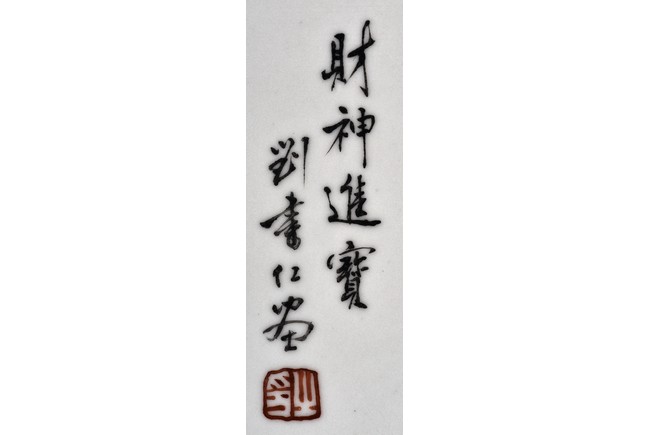 財神進寶
劉書仁畫